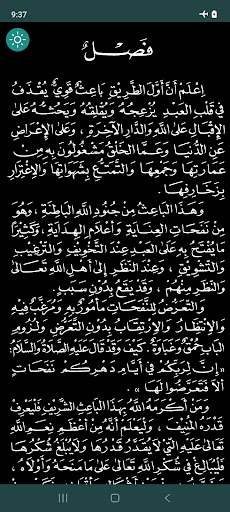 9:37
فَصْلٌ
اِعْلَمْ أَنَّ أَوَّلَ الطَّرِيْقِ بَاعِثٌ قَوِيٌّ يُقْذَفُ
فِي قَلْبِ الْعَبْدِ يُزْعِجُهُ وَيُقْلِقُهُ وَيَحُثُّهُ عَلَى
الْإِقْبَالِ عَلَى اللهِ وَالدَّارِ الْآخِرَةِ ، وَعَلَى الْإِعْرَاضِ
عَنِ الدُّنْيَا وَعَمَّا الْخَلْقُ مَشْغُوْلُوْنَ بِهِ مِنْ
عِمَارَتِهَا وَجَمْعِهَا وَالتَّمَتُّعِ بِشَهَوَاتِهَا وَالْاِغْتِرَارِ
بِزَخَارِفِهَا.
وَهٰذَا الْبَاعِثُ مِنْ جُنُوْدِ اللهِ الْبَاطِنَةِ ، وَهُوَ
مِنْ نَفَحَاتِ الْعِنَايَةِ وَأَعْلَامِ الْهِدَايَةِ، وَكَثِيْرًا
مَا يُفْتَحُ بِهِ عَلَى الْعَبْدِ عِنْدَ التَّخْوِيْفِ وَالتَّرْغِيْبِ
وَالتَّشْوِيْقِ ، وَعِنْدَ النَّظَرِ إِلَى أَهْلِ اللهِ تَعَالَى
وَالنَّظَرِ مِنْهُمْ ، وَقَدْ يَقَعُ بِدُوْنِ سَبَبٍ.
وَالتَّعَرُّضُ لِلنَّفَحَاتِ مَأْمُوْرٌ بِهِ وَمُرَغَّبٌ فِيْهِ
وَالْاِنْتِظَارُ وَالْاِرْتِقَابُ بِدُوْنِ التَّعَرُّضِ وَلُزُوْمِ
الْبَابِ حُمْقٌ وَغَبَاوَةٌ. كَيْفَ وَقَدْ قَالَ عَلَيْهِ الصَّلَاةُ وَالسَّلَامُ:
«إِنَّ لِرَبِّكُمْ فِي أَيَّامِ دَهْرِكُمْ نَفَحَاتٍ
أَلَا فَتَعَرَّضُوْا لَهَا».
وَمَنْ أَكْرَمَهُ اللهُ بِهٰذَا الْبَاعِثِ الشَّرِيْفِ فَلْيَعْرِفْ
قَدْرَهُ الْمُنِيْفَ ، وَلْيَعْلَمْ أَنَّهُ مِنْ أَعْظَمِ نِعَمِ اللهِ
تَعَالَى عَلَيْهِ الَّتِيْ لَا يُقْدَرُ قَدْرُهَا وَلَا يُبْلَغُ شُكْرُهَا
فَلْيُبَالِغْ فِي شُكْرِ اللهِ تَعَالَى عَلَى مَا مَنَحَهُ وَأَوْلَاهُ ،